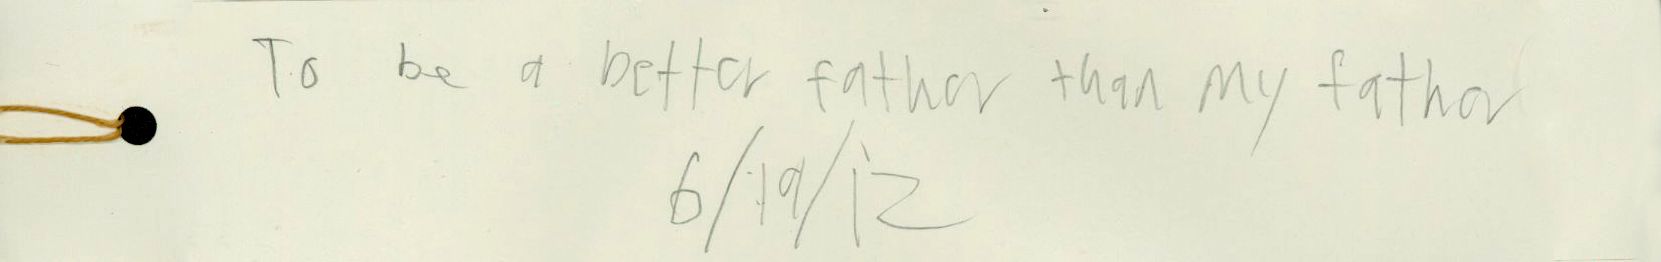 To be a better father than my father
6/19/12